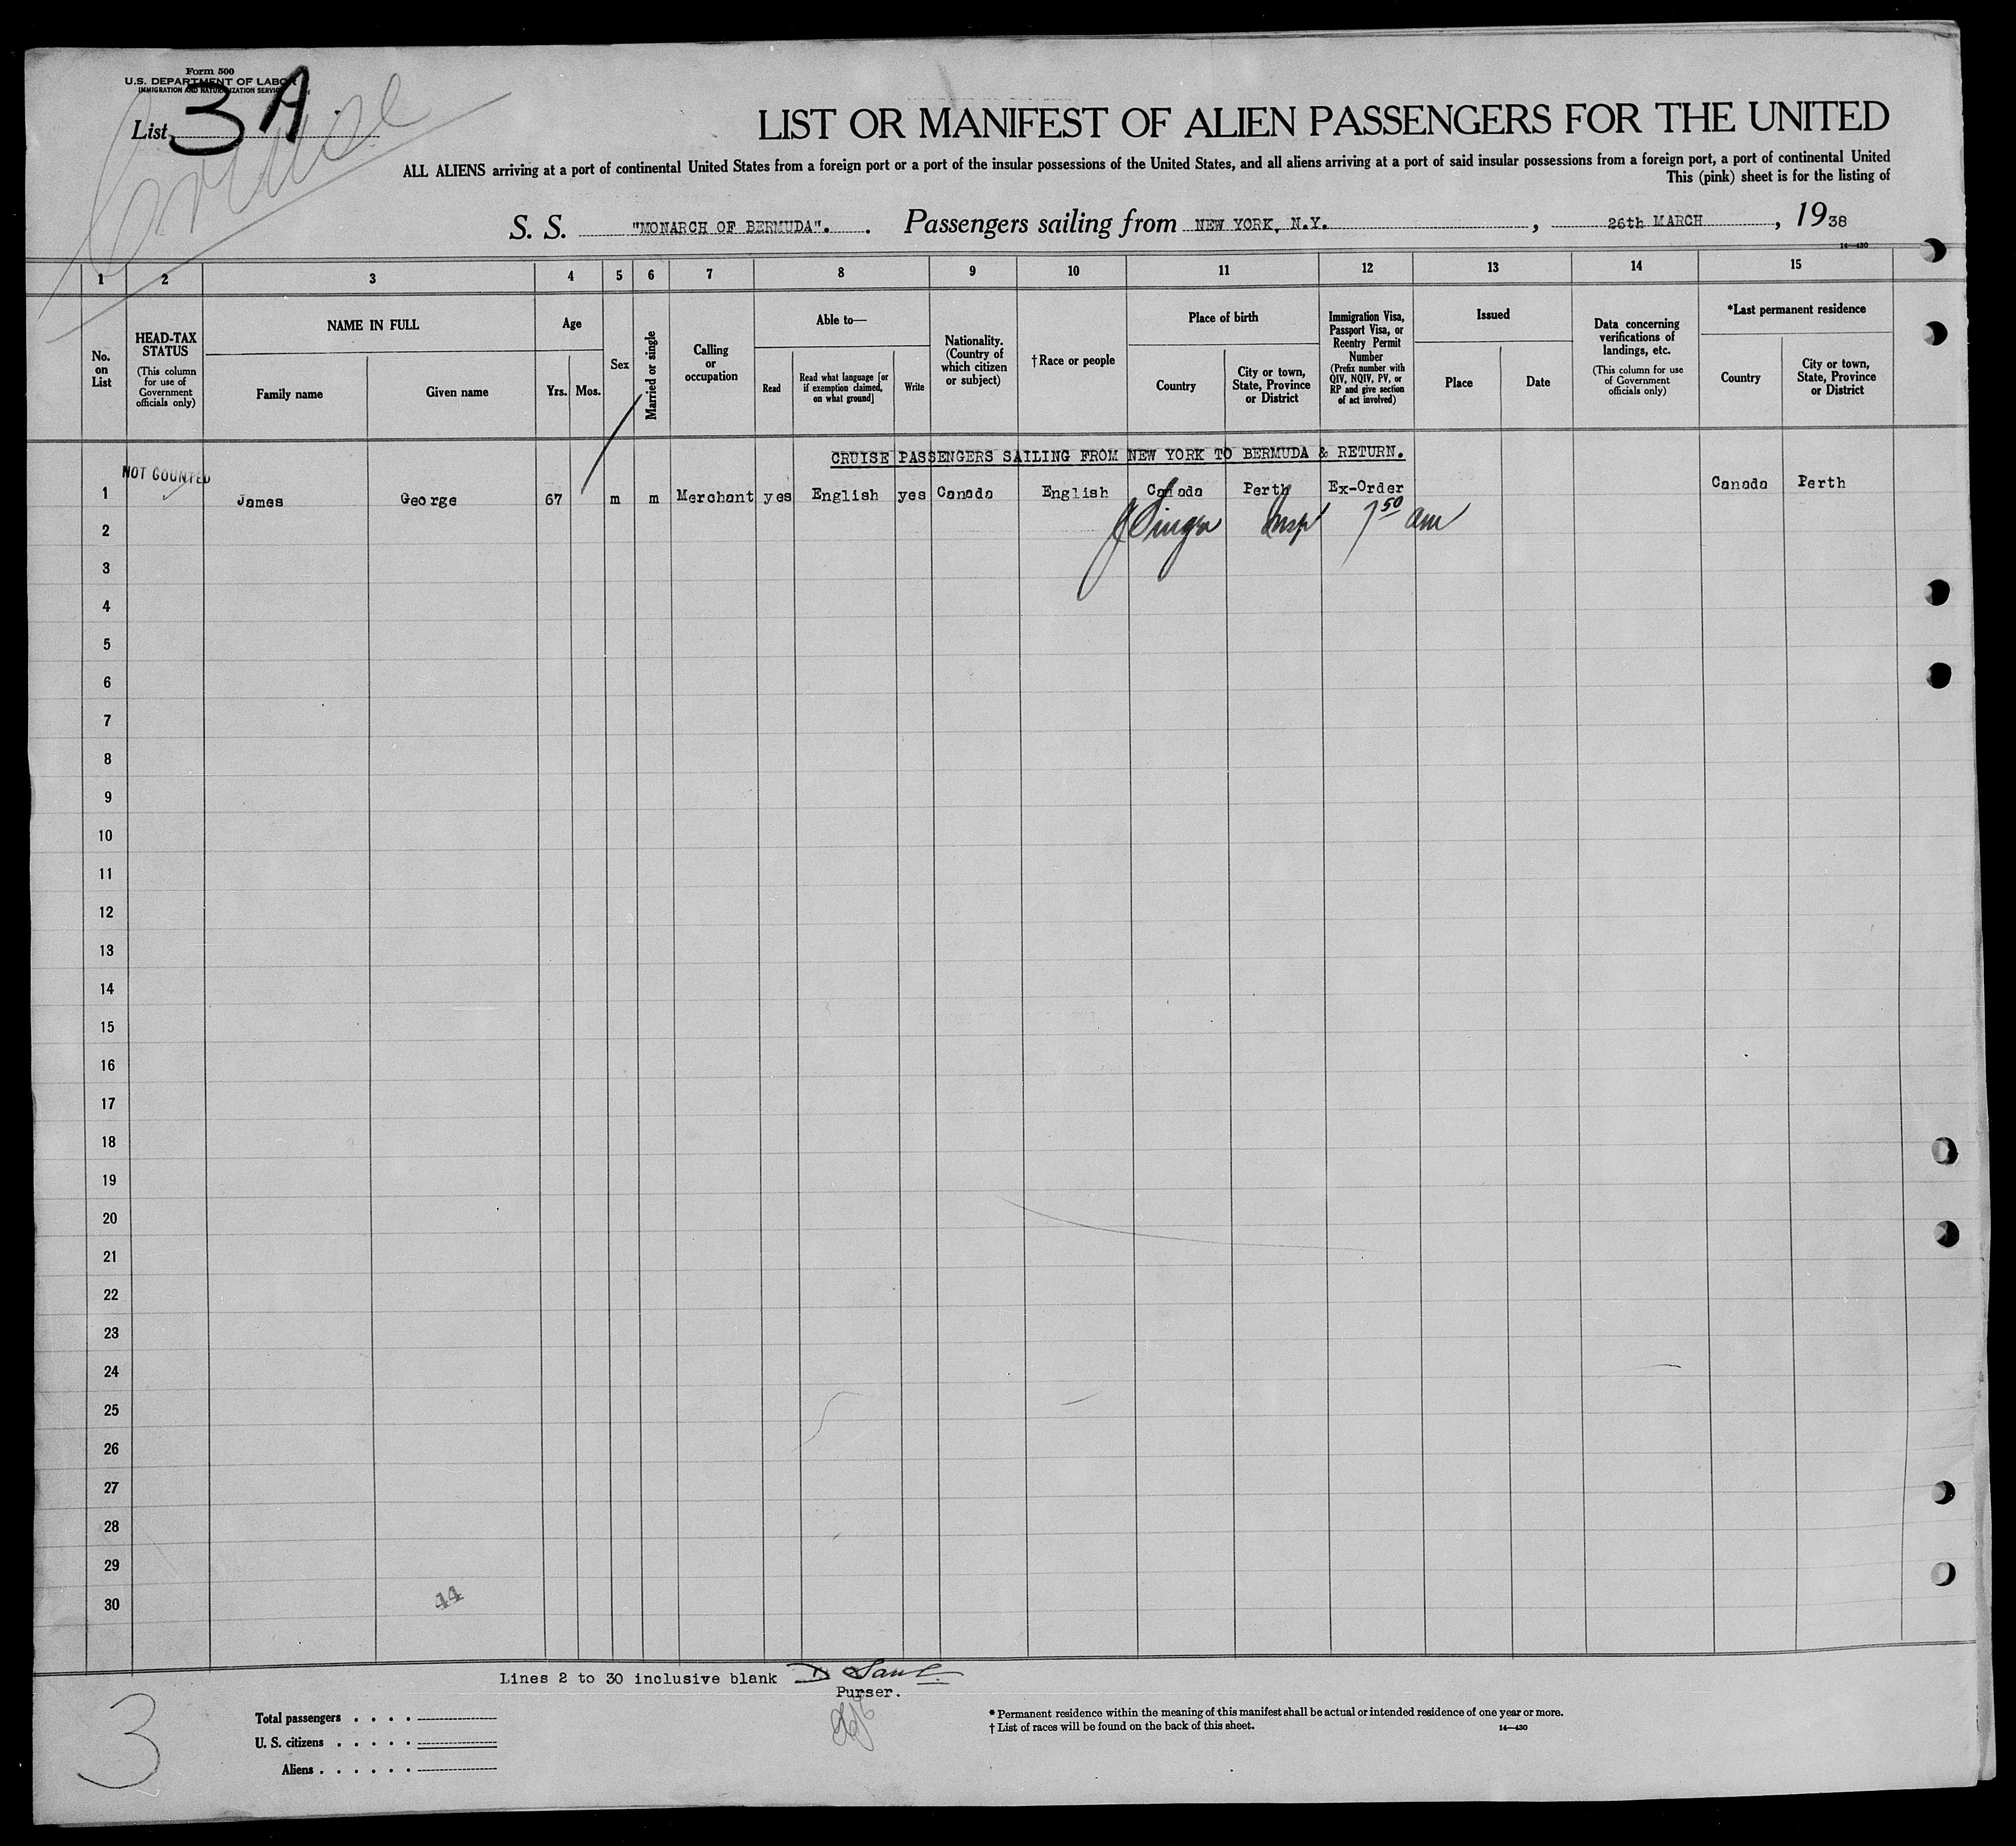 Form 500
U.S. DEPARTMENT OF LABOR
IMMIGRATION AND NATURALIZATION SERVICE
List 3 A
Cruise
LIST OR MANIFEST OF ALIEN PASSENGERS FOR THE UNITED
ALL ALIENS arriving at a port of continental United States from a foreign port or a port of the insular possessions of the United States, and all aliens arriving at a port of said insular possessions from a foreign port, a port of continental United
This (pink) sheet is for the listing of
S. S. "MONARCH OF BERMUDA". . Passengers sailing from NEW YORK, N.Y. , 26th MARCH , 1938
14—430
1 2 3 4 5 6 7 8 9 10 11 12 13 14 15
No. on List
HEAD-TAX STATUS (This column for use of Government officials only)
NAME IN FULL
Family name
Given name
Age
Yrs. Mos.
Sex
Married or single
Calling or occupation
Able to—
Read
Read what language [or if exemption claimed, on what ground]
Write
Nationality. (Country of which citizen or subject)
†Race or people
Place of birth
Country
City or town, State, Province or District
Immigration Visa, Passport Visa, or Reentry Permit Number (Prefix number with QIV, NQIV, PV, or RP and give section of act involved)
Issued
Place
Date
Data concerning verifications of landings, etc. (This column for use of Government officials only)
*Last permanent residence
Country
City or town, State, Province or District
CRUISE PASSENGERS SAILING FROM NEW YORK TO BERMUDA & RETURN.
NOT COUNTED
1 James George 67 m m Merchant yes English yes Canada English Canada Perth Ex-Order Canada Perth
Insp 7 50 am
2
3
4
5
6
7
8
9
10
11
12
13
14
15
16
17
18
19
20
21
22
23
24
25
26
27
28
29
30
44
Lines 2 to 30 inclusive blank
Purser.
3
Total passengers . . . .
U. S. citizens . . . . .
Aliens . . . . . .
* Permanent residence within the meaning of this manifest shall be actual or intended residence of one year or more.
† List of races will be found on the back of this sheet.
14—430